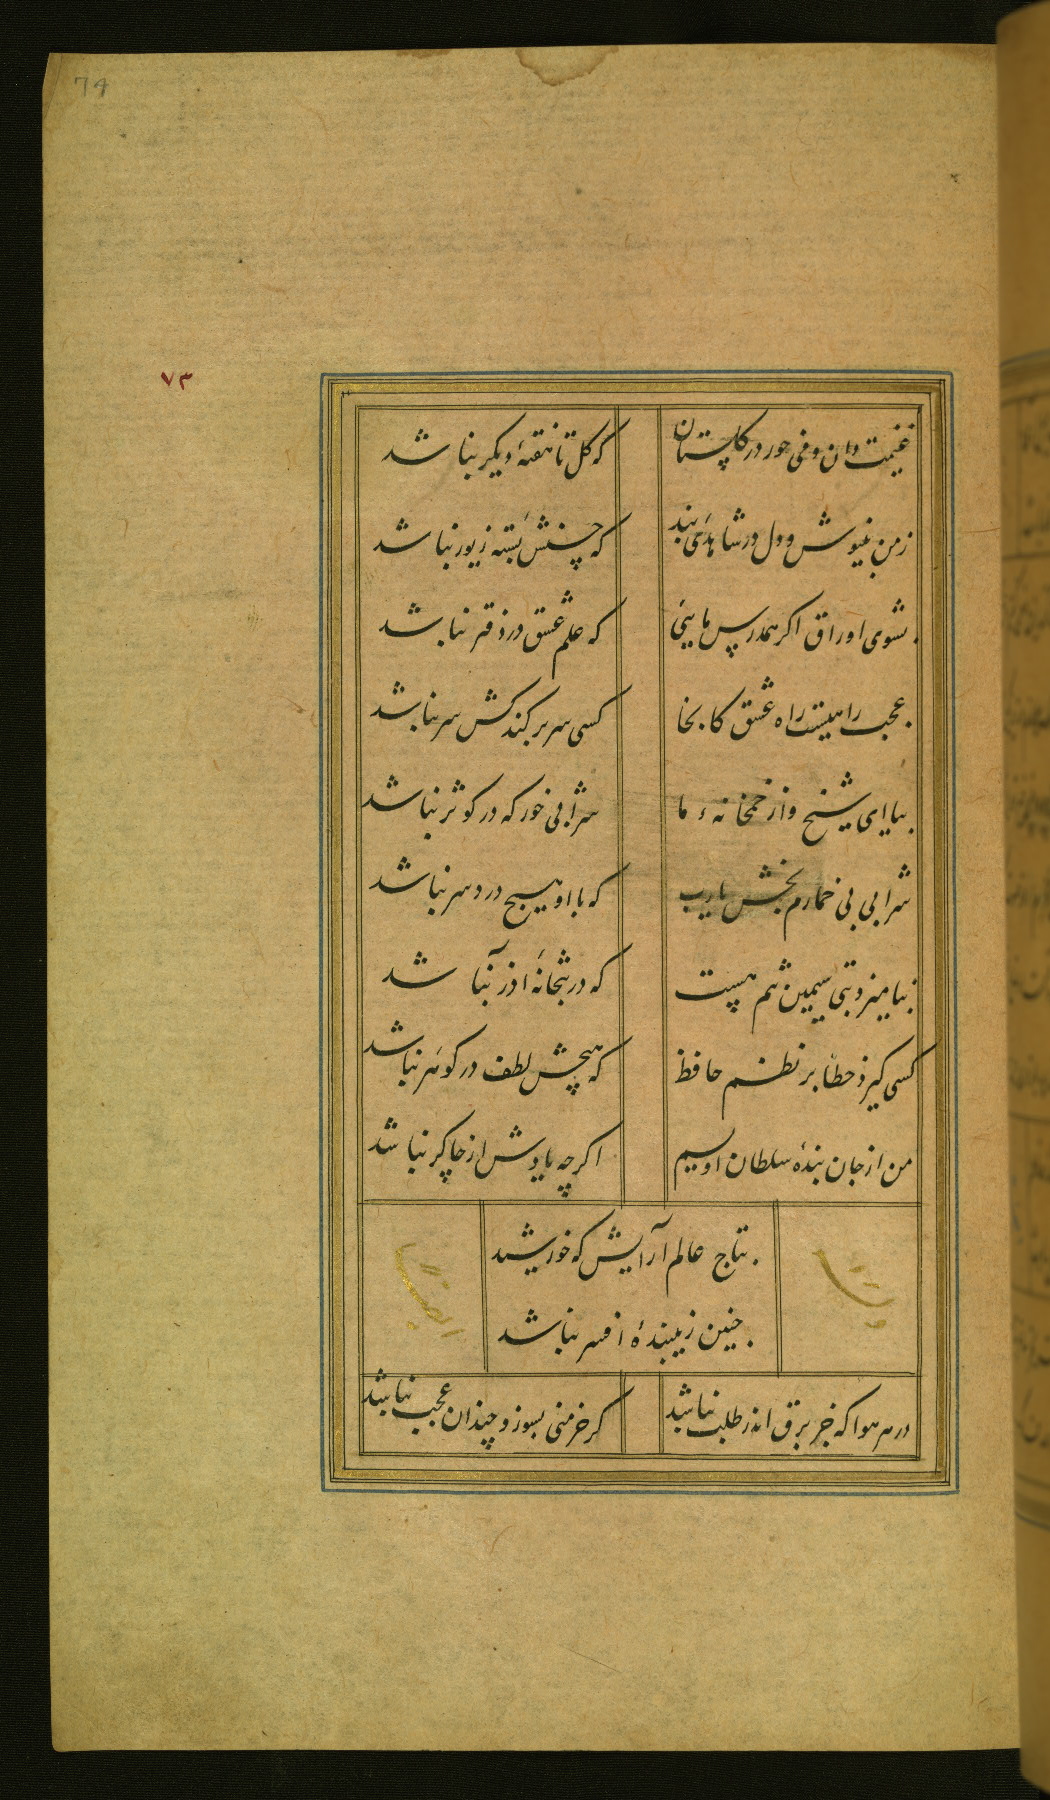 74
٧٣
غنیمت دان و می خور در گلستان
که کل تا هفتهٔ دیگر نباشد
زمن بنیوش و دل در شاهدی بند
که حسنش بسته زیور نباشد
بشوی اوراق اگر همدرس مایی
که علم عشق در دفتر نباشد
عجب راهیست راه عشق کانجا
کسی سر برکند کش سر نباشد
بیا ای شیخ و از خمخانهٔ ما
شرابی خور که در کوثر نباشد
شرابی بی خمارم بخش یارب
که با او هیچ درد سر نباشد
بنامیزد بتی سیمین تنم هست
که در بتخانهٔ آذر نباشد
کسی گیرد خطا بر نظم حافظ
که هیچش لطف در گوهر نباشد
من از جان بندهٔ سلطان اویسم
اگرچه یادش از چاکر نباشد
بتاج عالم آرایش که خورشید
چنین زیبندهٔ افسر نباشد
در هر هوا که جز برق اندر طلب نباشد
گر خرمنی بسوزد چندان عجب نباشد